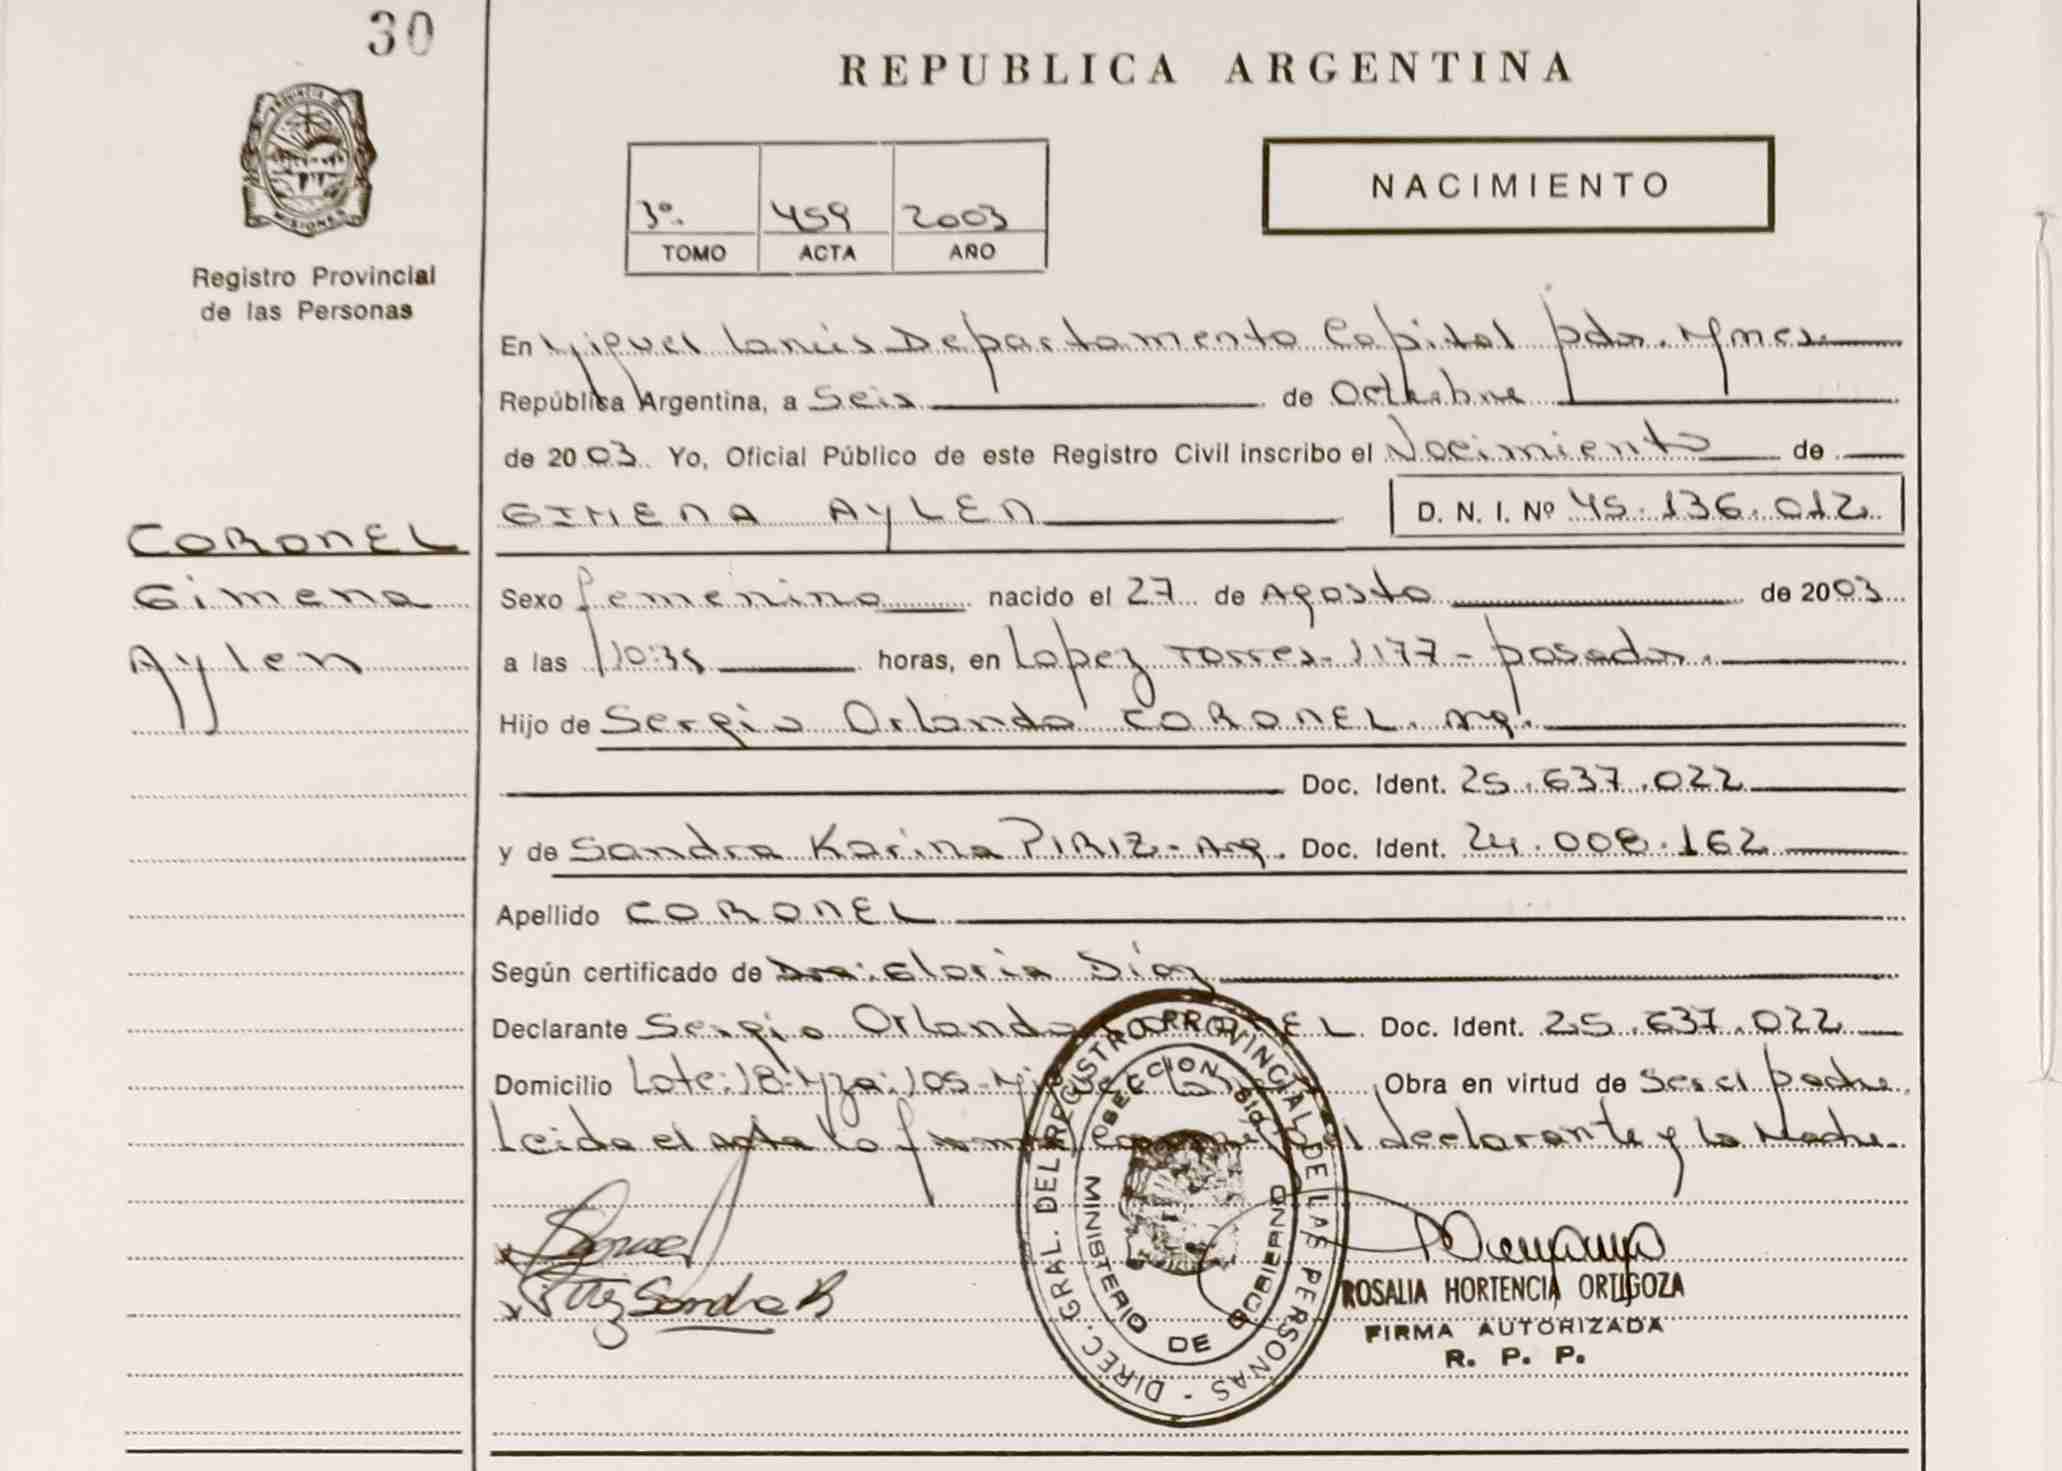 30
REPUBLICA ARGENTINA
PROVINCIA DE
MISIONES
Registro Provincial
de las Personas
3º. 459 2003
TOMO ACTA AÑO
NACIMIENTO
En Miguel Lanús Departamento Capital pdas. Mnes.
República Argentina, a Seis de Octubre
de 2003. Yo, Oficial Público de este Registro Civil inscribo el Nacimiento de
GIMENA AYLEN D. N. I. Nº 45.136.012
CORONEL
Gimena
Aylen
Sexo femenino nacido el 27 de Agosto de 2003
a las 10:35 horas, en Lopez Torres-1177-posadas.
Hijo de Sergio Orlando CORONEL. Arg.
Doc. Ident. 25.637.022
y de Sandra Karina PIRIZ-Arg. Doc. Ident. 24.008.162
Apellido CORONEL
Según certificado de Dra: Gloria Díaz
Declarante Sergio Orlando CORONEL Doc. Ident. 25.637.022
Domicilio Lote:18-Mza:105-Miguel Lanús Obra en virtud de Ser el padre.
Leida el acta la firman el declarante y la Madre.
DIREC. GRAL. DEL REGISTRO PROVINCIAL DE LAS PERSONAS -
MINISTERIO DE GOBIERNO
Piriz Sandra K
ROSALIA HORTENCIA ORTIGOZA
FIRMA AUTORIZADA
R. P. P.